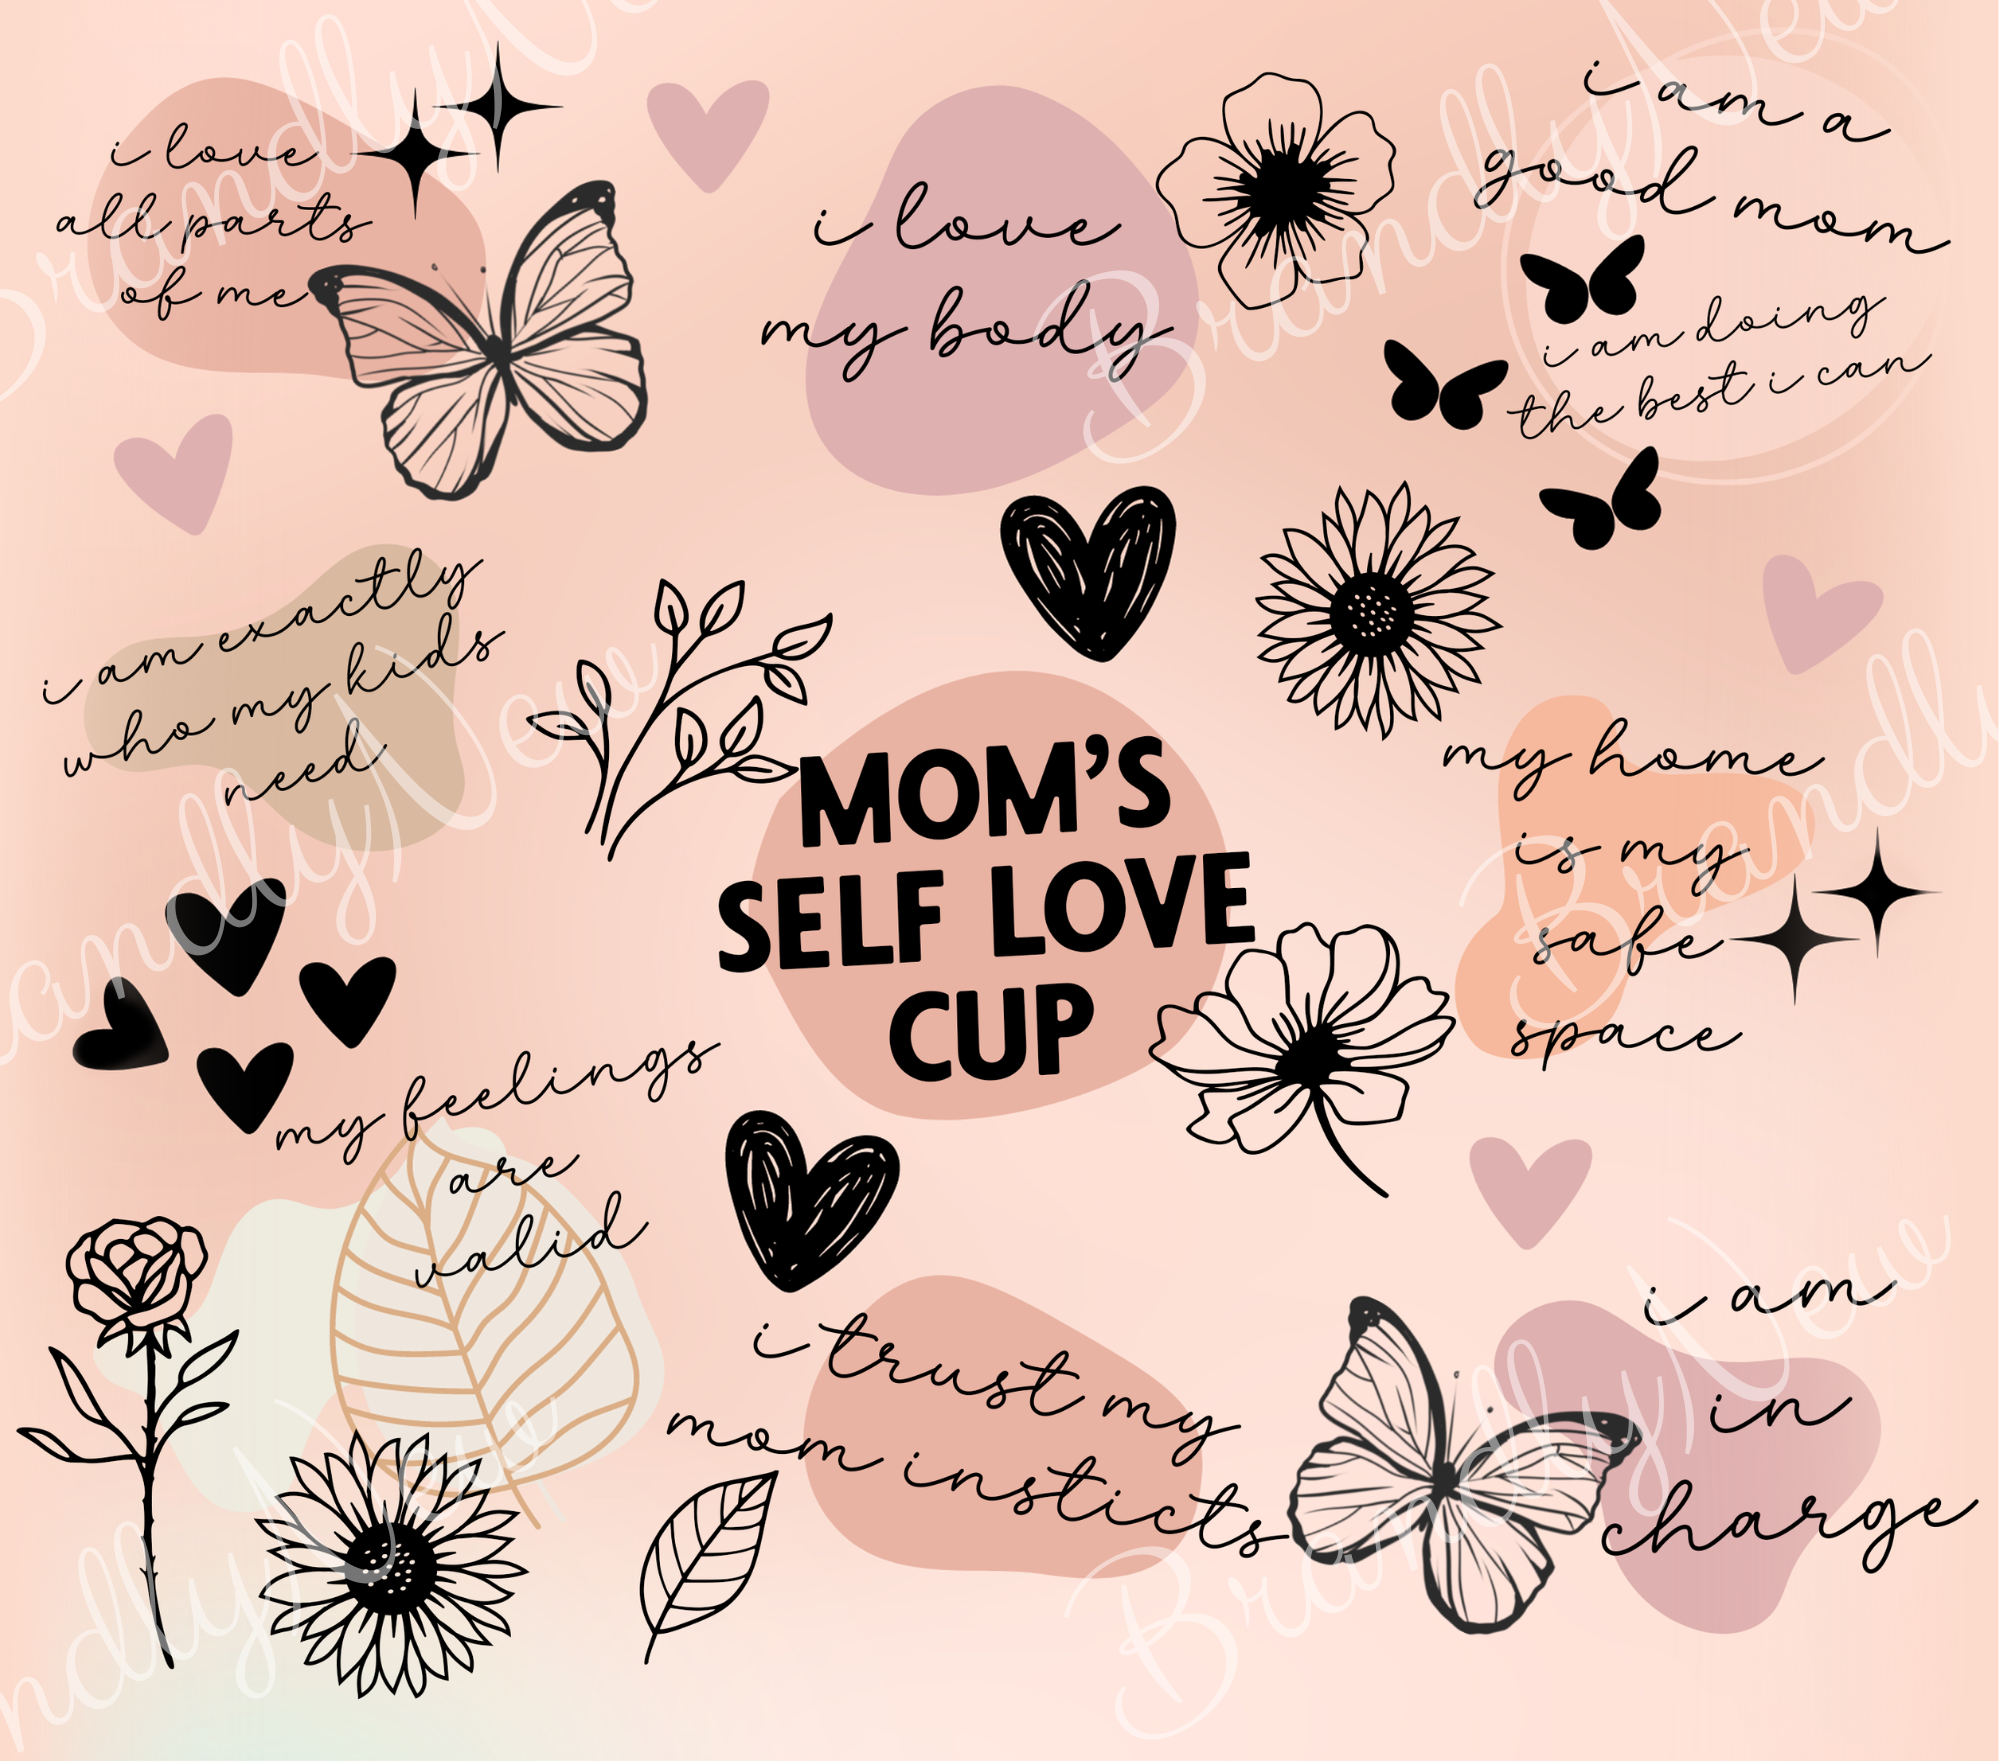 i love
all parts
of me
i love
my body
i am a
good mom
i am doing
the best i can
i am exactly
who my kids
need
MOM'S
SELF LOVE
CUP
my home
is my
safe
space
my feelings
are
valid
i trust my
mom insticts
i am
in
charge
BrandlyNew
BrandlyNew
BrandlyNew
BrandlyNew
BrandlyNew
BrandlyNew